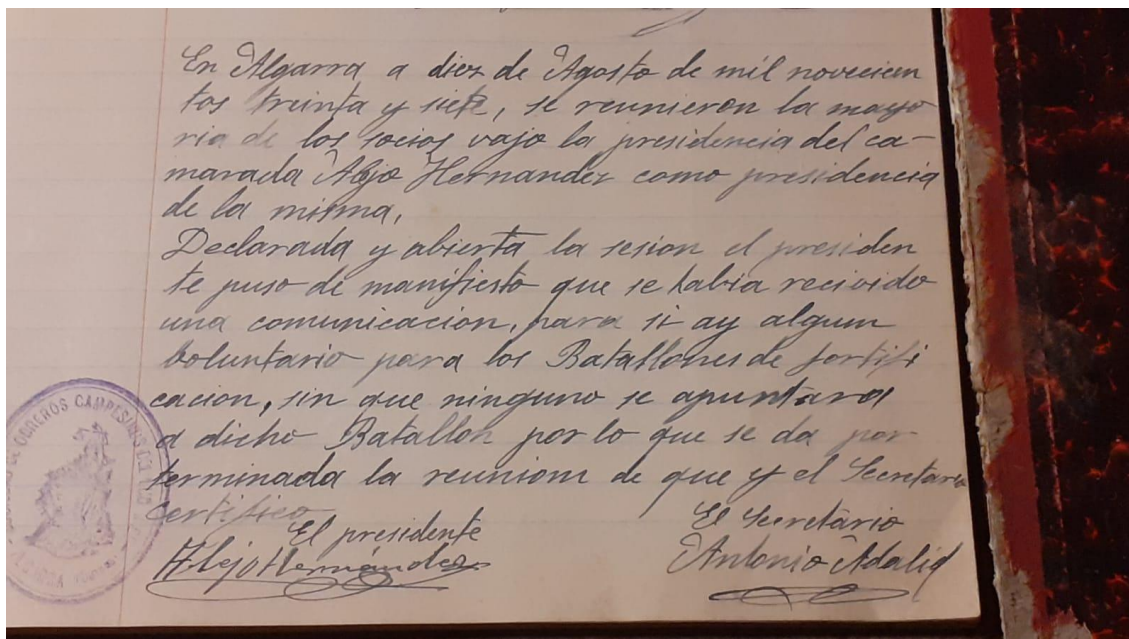 En Algarra a diez de Agosto de mil novecien
tos treinta y siete, se reunieron la mayo
ria de los socios vajo la presidencia del ca-
marada Alejo Hernandez como presidencia
de la misma,
Declarada y abierta la sesion el presiden
te puso de manifiesto que se habia recivido
una comunicacion, para si ay algun
boluntario para los Batallones de fortifi
cacion, sin que ninguno se apuntara
a dicho Batallon por lo que se da por
terminada la reuniom de que y el Secretario
certifico
El presidente
Alejo Hernández
El Secretario
Antonio Adalid
DE OBREROS CAMPESINOS